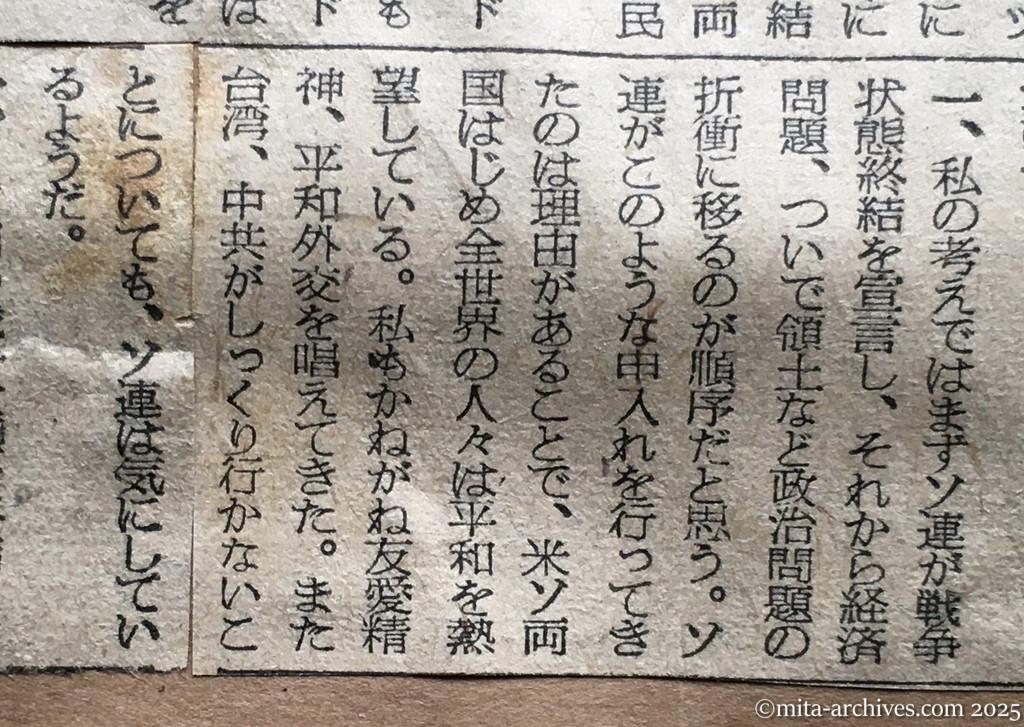 ッ
に
に
結
両
民
ド
も
ド
は
を
一、私の考えではまずソ連が戦争
状態終結を宣言し、それから経済
問題、ついで領土など政治問題の
折衝に移るのが順序だと思う。ソ
連がこのような申入れを行ってき
たのは理由があることで、米ソ両
国はじめ全世界の人々は平和を熱
望している。私もかねがね友愛精
神、平和外交を唱えてきた。また
台湾、中共がしっくり行かないこ
とについても、ソ連は気にしてい
るようだ。
©mita-archives.com 2025